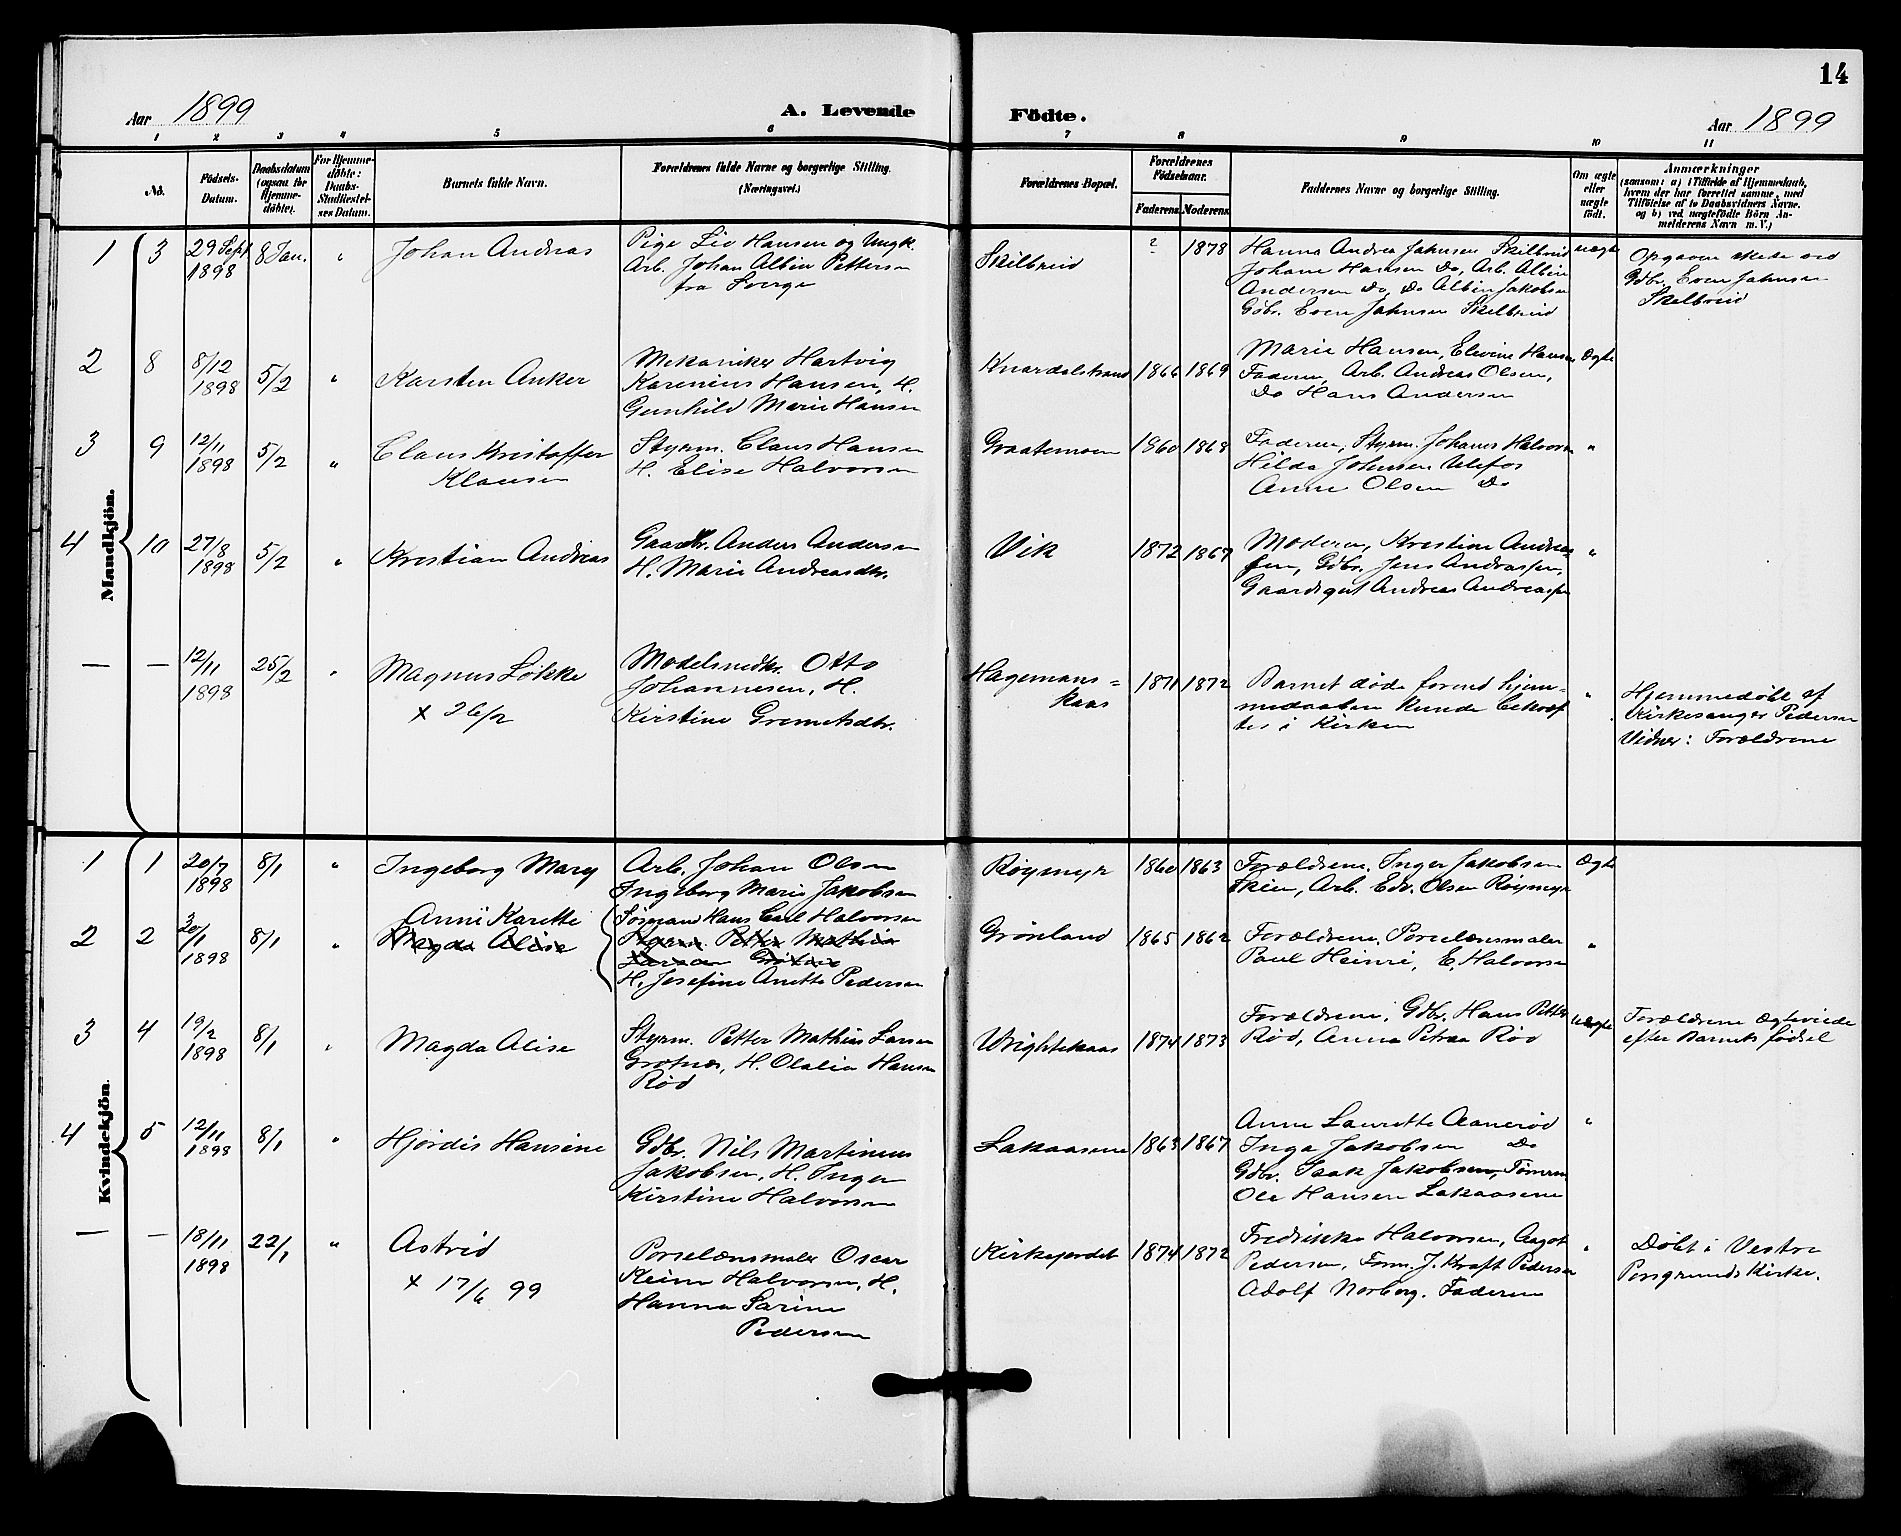 14
Aar 1899
A. Levende
Födte.
Aar 1899
1 2 3 4 5 6 7 8 9 10 11
No.
Födsels-
Datum.
Daabsdatum
(ogsaa for
Hjemme-
döbte).
For Hjemme-
döbte:
Daabs-
Stadfæstel-
ses Datum.
Barnets fulde Navn.
Forældrenes fulde Navne og borgerlige Stilling.
(Næringsvei.)
Forældrenes Bopæl.
Forældrenes
Födselsaar.
Faderens Moderens
Faddernes Navne og borgerlige Stilling.
Om ægte
eller
uægte
födt.
Anmærkninger
(saasom: a) i Tilfælde af Hjemmedaab,
hvem der har forrettet samme, med
Tilföielse af to Daabsvidners Navne.
og b) ved uægtefödte Börn An-
melderens Navn m. V.)
Mandkjön.
1 3 29 Sept 1898 8 Jan. " Johan Andreas
Pige Liv Hansen og Ungk.
Arb. Johan Albin Pettersen
fra Sverge
Skilbreid ? 1878
Hanna Andrea Jahnsen Skilbreid
Johane Hansen Do, Arb. Albin
Andersen Do, Do Albin Jakobsen
Gdbr. Even Jahnsen Skilbreid
uægte
Opgaven skede ved
Gdbr. Even Jahnsen
Skelbreid
2 8 8/12 1898 5/2 " Karsten Anker
Mekaniker Hartvig
Karenius Hansen, H.
Gunhild Marie Hansen
Knardalstrand 1866 1869
Marie Hansen, Elevine Hansen
Faderen, Arb. Andreas Olsen,
Do Hans Andersen
Ægte
3 9 12/11 1898 5/2 " Claus Kristoffer
Klausen
Styrm. Claus Hansen
H. Elise Halvorsen
Graatemoen 1860 1868
Faderen, Styrm. Johanes Halvorsen
Hilda Johnsen Ulefos
Anne Olsen Do
"
4 10 27/8 1898 5/2 " Kristian Andreas
Gaardbr. Anders Andersen
H. Marie Andreasdtr.
Vik 1872 1867
Moderen, Kristine Andrea-
sen, Gdbr. Jens Andrassen,
Gaardsgut Andreas Andreassen
"
— — 12/11 1898 25/2 " Magnus Løkke
x 26/2
Modelsnedkr. Otto
Johannesen, H.
Kirstine Gremetsdtr.
Hagemans=
kaas 1871 1872
Barnet døde forend hjem-
medaaben kunde bekræf
tes i Kirken
"
Hjemmedøbt af
Kirkesanger Pedersen
Vidner: Forældrene
Kvindekjön
1 1 20/7 1898 8/1 " Ingeborg Mary
Arb. Johan Olsen
Ingeborg Marie Jakobsen
Røymyr 1860 1863
Forældrene, Inger Jakobsen
Skien, Arb. Edv. Olsen Røymyr
Ægte
2 2 30/1 1898 8/1 " Anni Karette
Magda Alise
Sømand Hans Carl Halvorsen
Styrm. Petter Mathias
Larsen Grotnes
H. Josefine Anette Pedersen
Grønland 1865 1862
Forældrene, Porselænsmaler
Paul Heinri, E. Halvorsen
"
3 4 19/2 1898 8/1 " Magda Alise
Styrm. Petter Mathias Larsen
Grotnes, H. Olalia Hansen
Rød
Wrightskaas 1874 1873
Forældrene, Gdbr. Hans Petter
Rød, Anna Petrea Rød
Uægte
Forældrene ægteviede
efter Barnets fødsel
4 5 12/11 1898 8/1 " Hjørdis Hansine
Gdbr. Nils Martinius
Jakobsen, H. Inger
Kirstine Halvorsen
Lakaasene 1863 1867
Anne Laurette Aanerød
Inga Jakobsen Do
Gdbr. Isak Jakobsen, Tømrm
Ole Hansen Lakaasene
"
— — 18/11 1898 22/1 " Astrid
x 17/6 99
Porselænsmaler Oscar
Keim Halvorsen, H.
Hanna Sarine
Pedersen
Kirkejordet 1874 1872
Fredrikke Halvorsen, Aagot
Pedersen, Form. J. Kraft Pedersen
Adolf Norberg. Faderen
"
Døbt i Vestre
Porsgrunds Kirke.